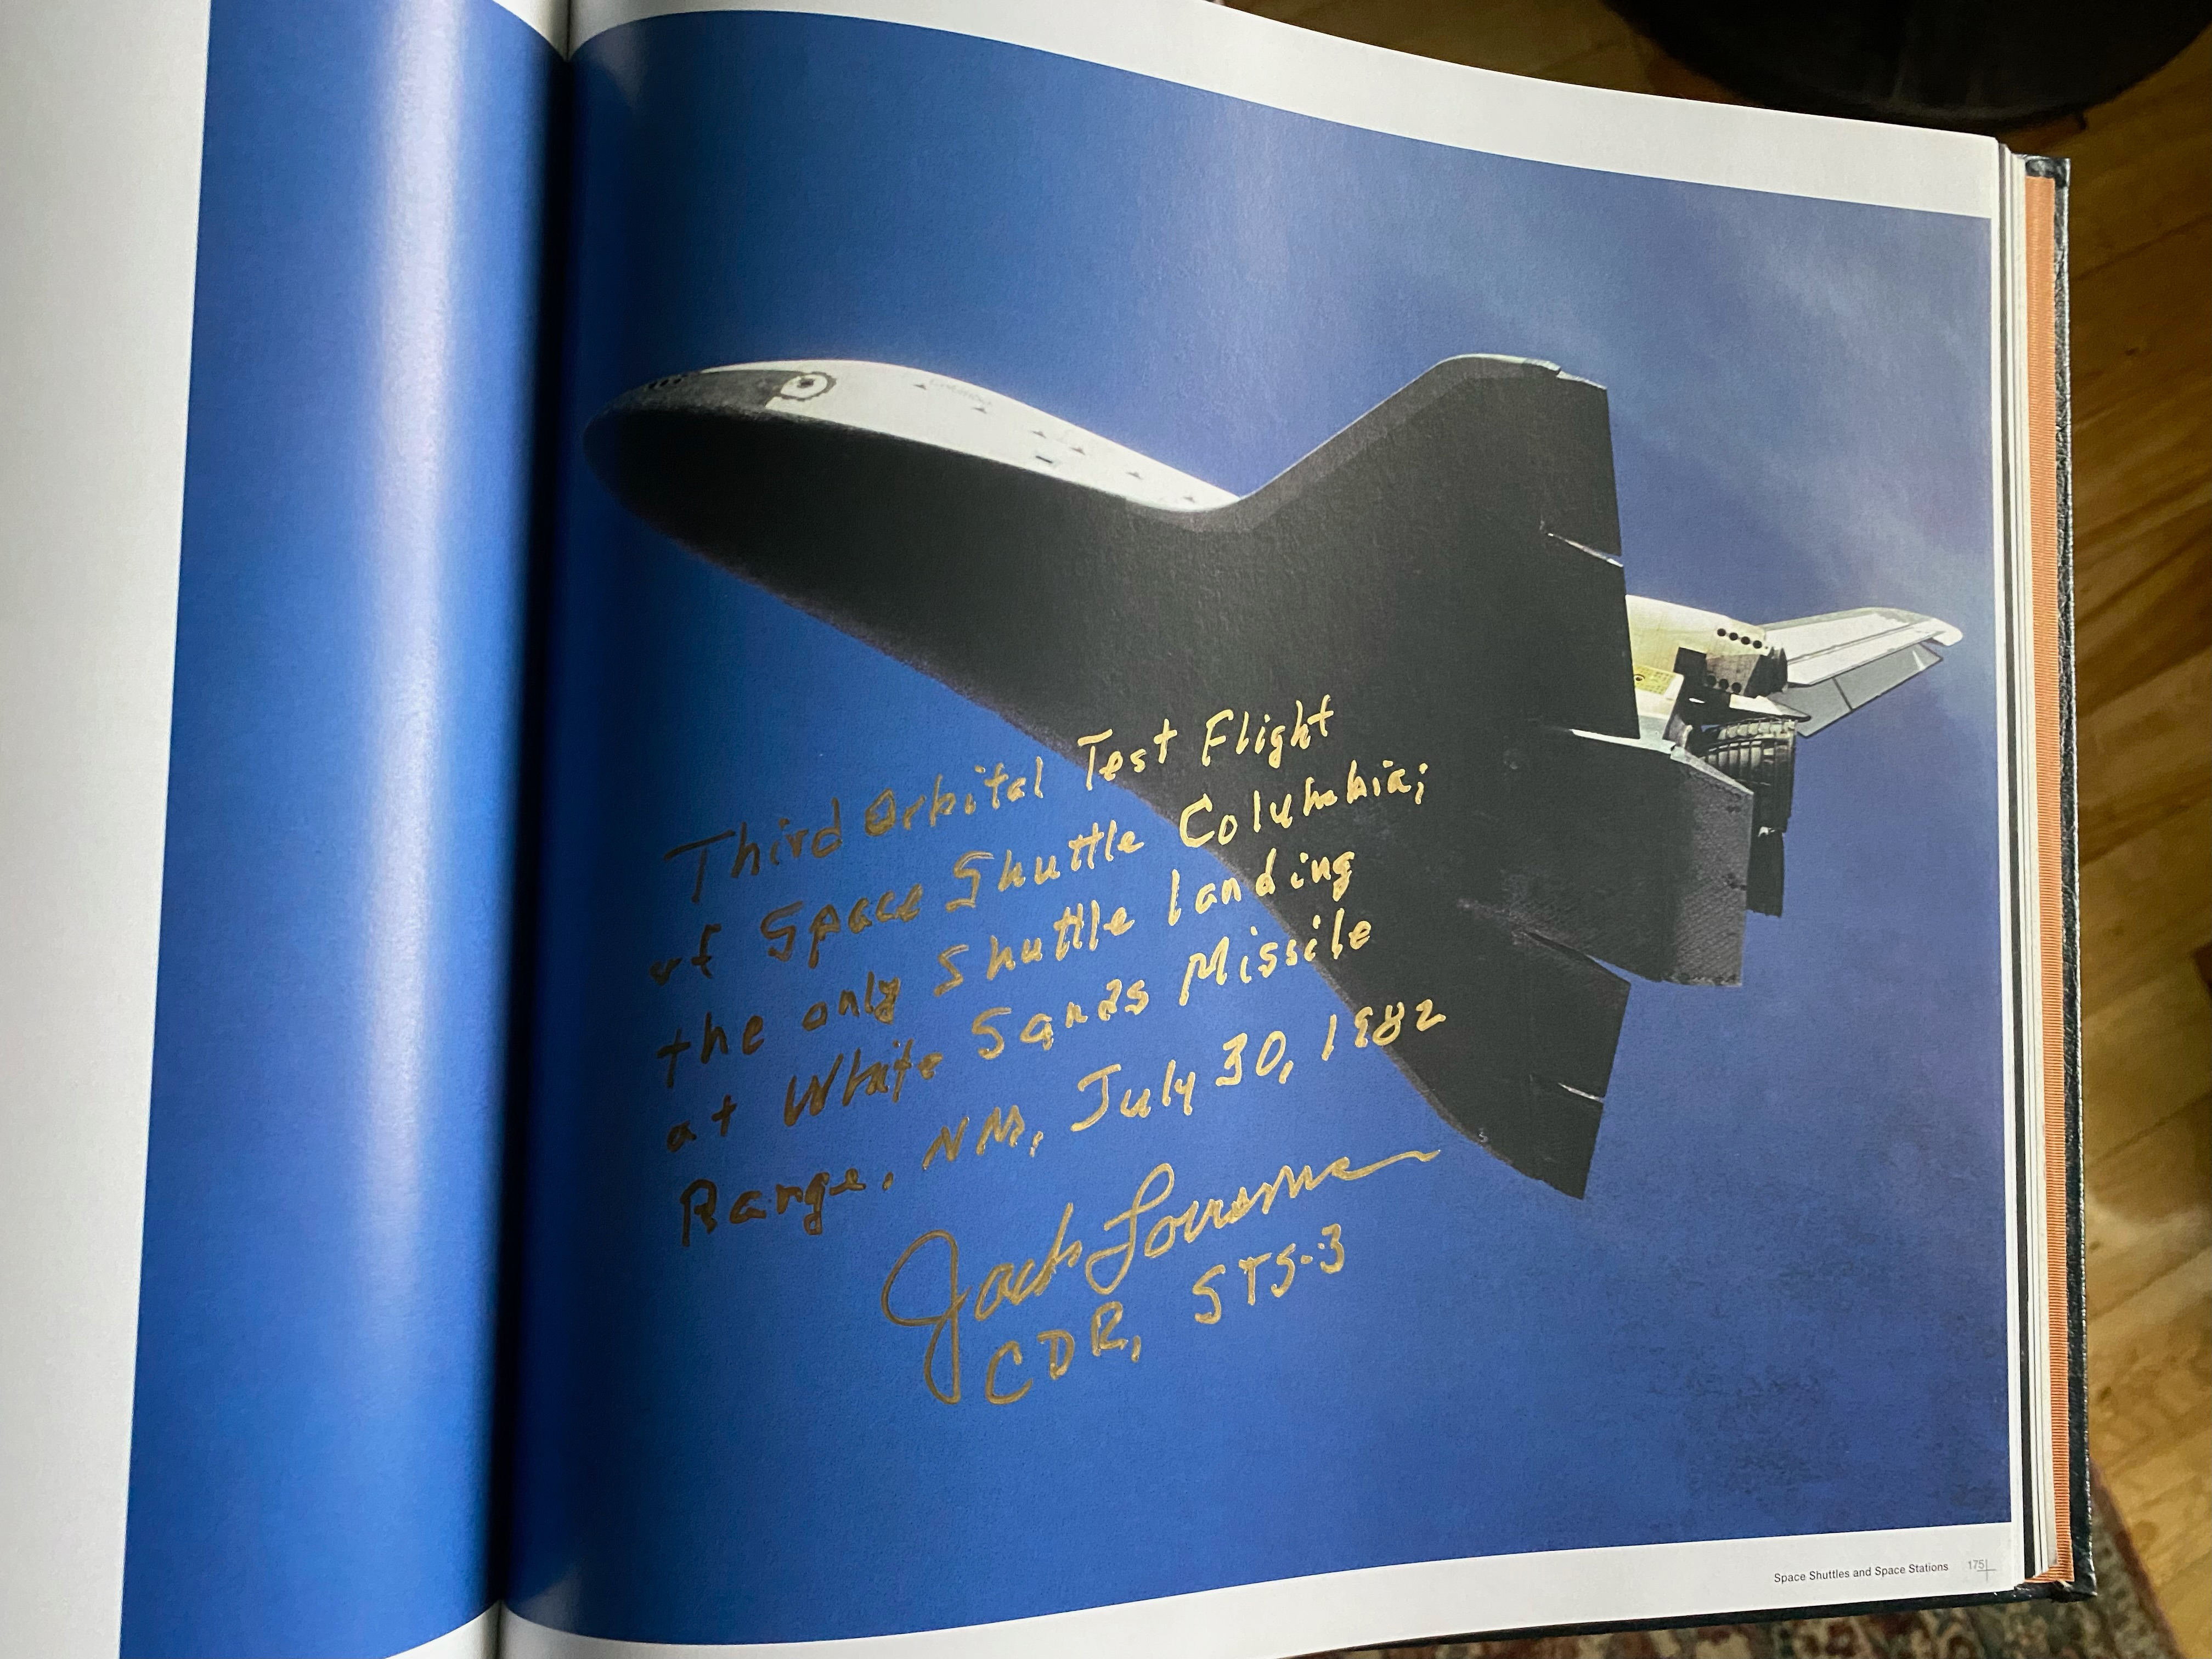 Third Orbital Test Flight
of Space Shuttle Columbia;
the only Shuttle landing
at White Sands Missile
Range, NM, July 30, 1982
Jack Lousma
CDR, STS-3
Space Shuttles and Space Stations 175